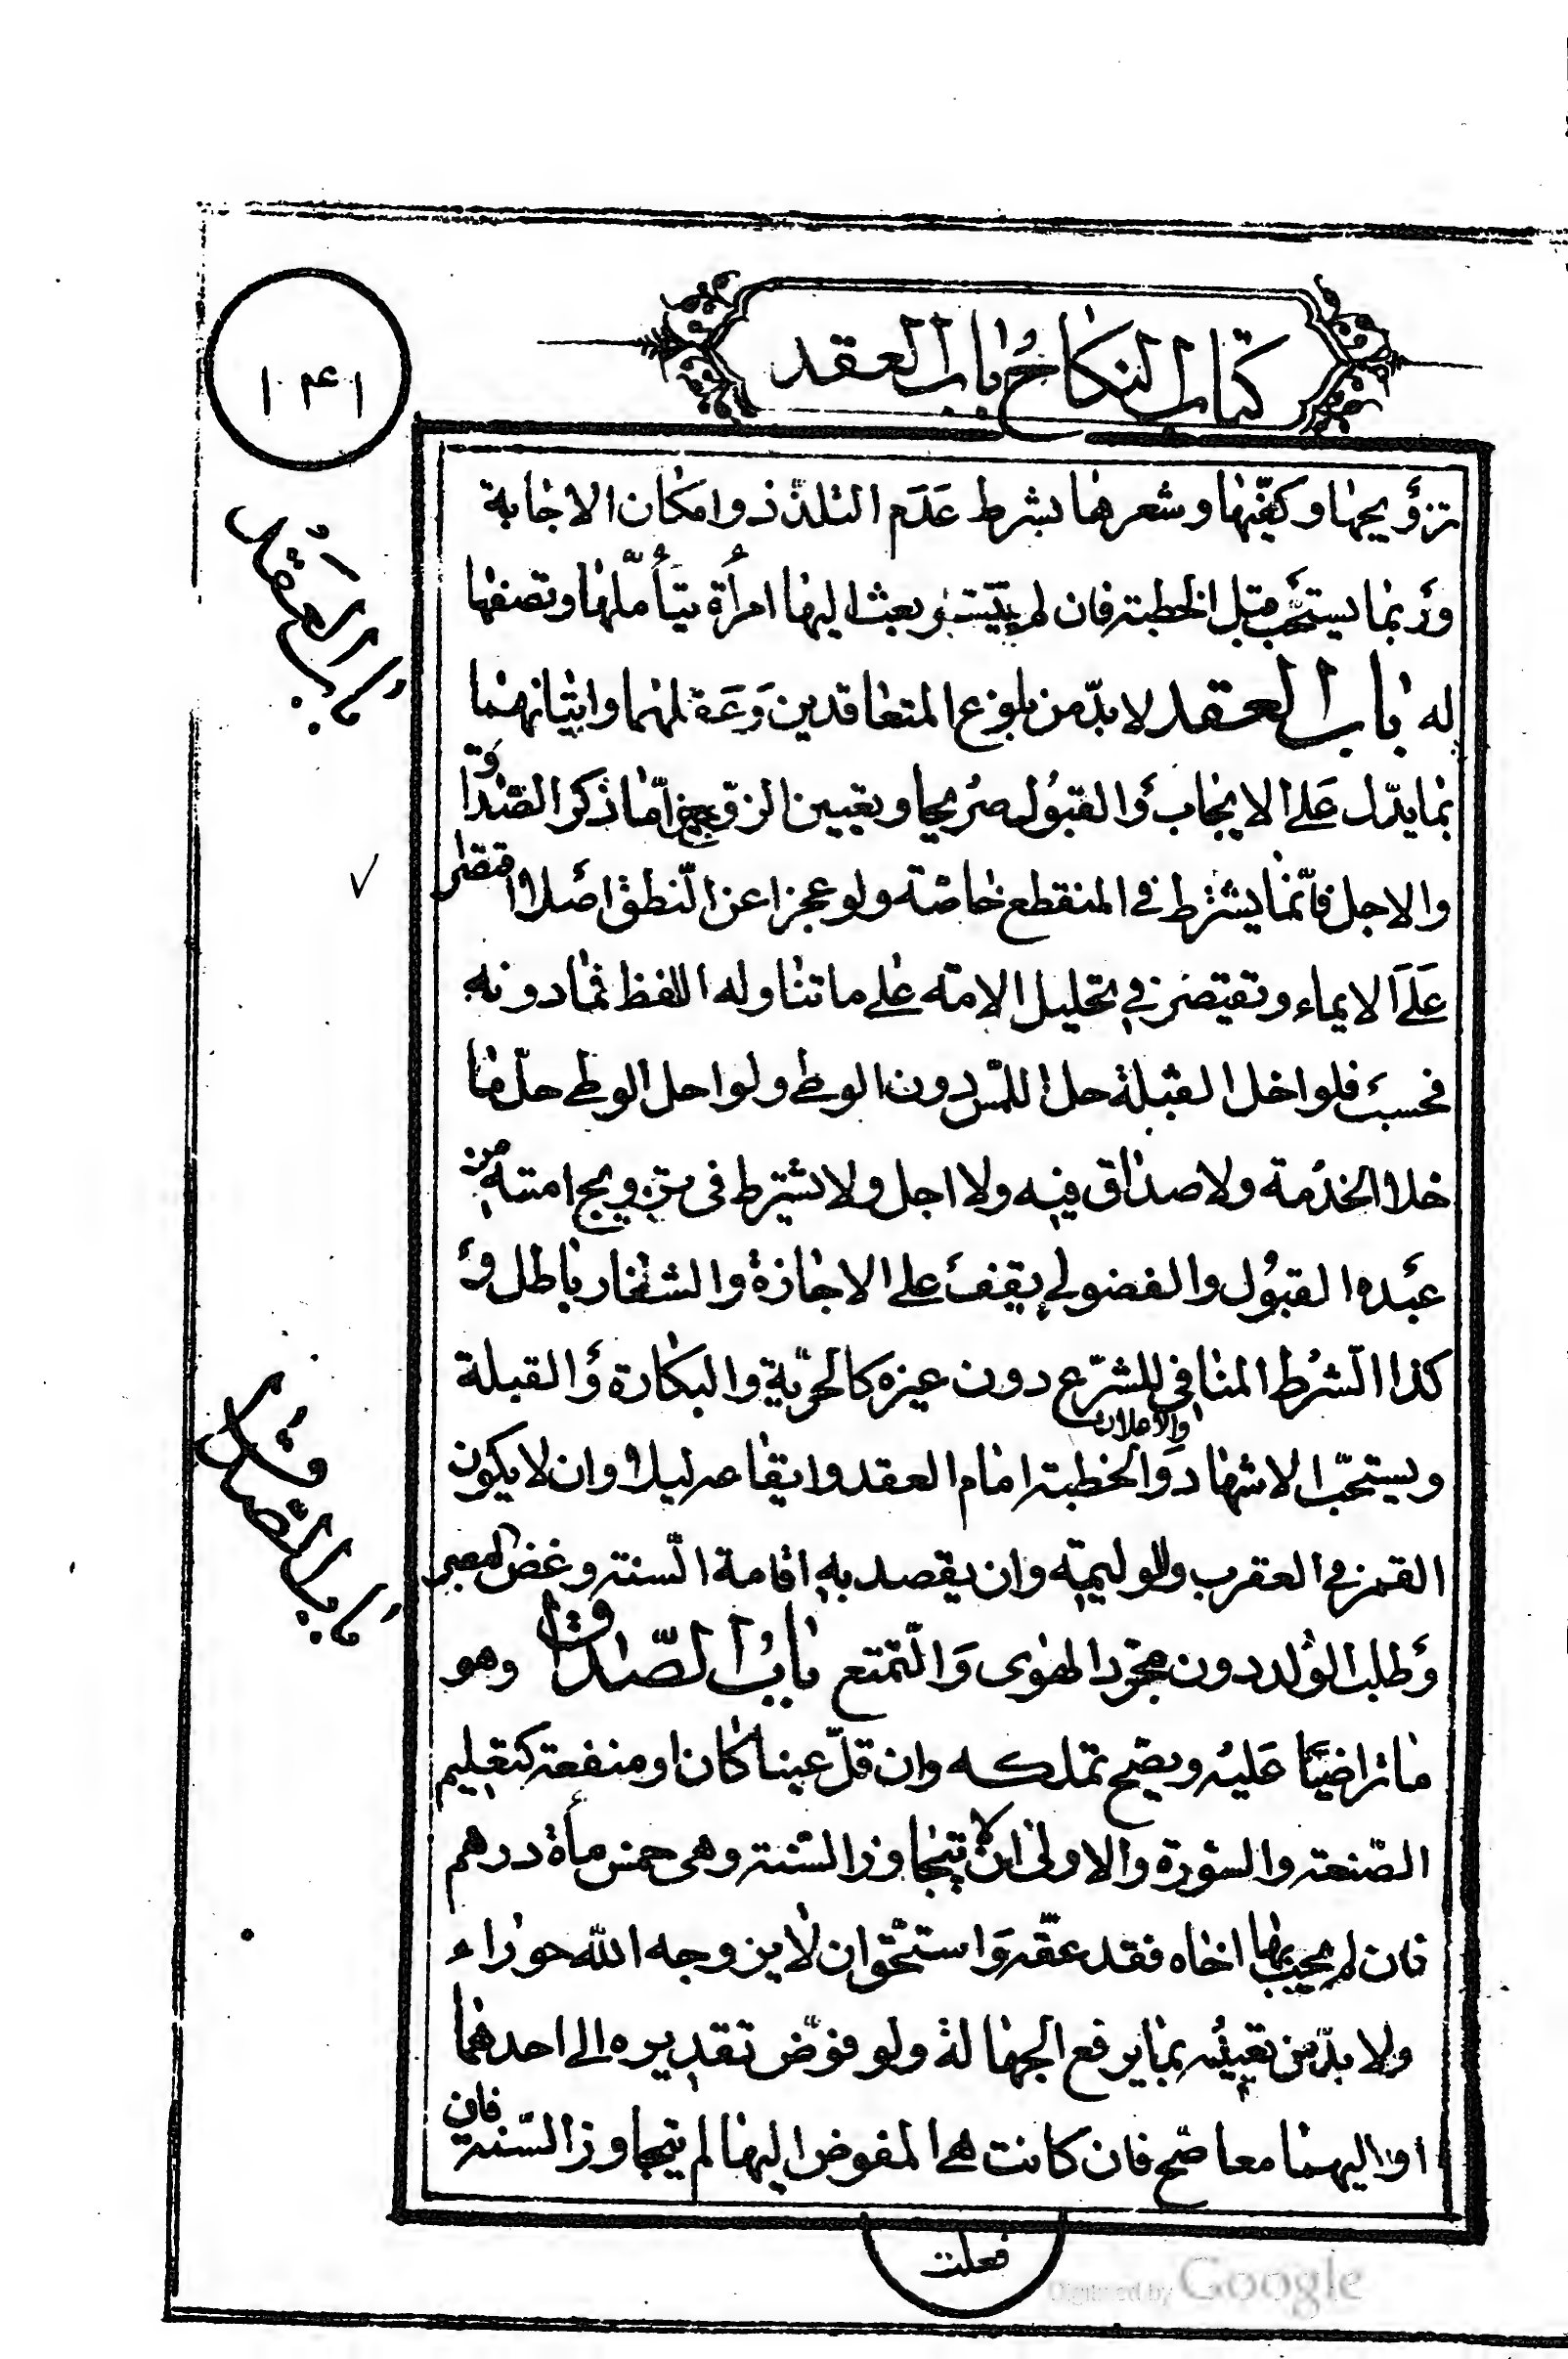 كتاب النكاح باب العقد
١٤١
تزويجها وكفيّها وشعرها بشرط عدم التلذّذ وامكان الاجابة
وربما يستحب قبل الخطبة فان لم يتيسر بعث اليها امرأة يتأمّلها وتصفها
له باب العقد لا بدّ من بلوغ المتعاقدين وعقلهما واتيانهما
بما يدّل على الايجاب والقبول صريحا وتعيين الزوجين امّا ذكر الصّداق
والاجل فانّما يشترط في المنقطع خاصّة ولو عجزا عن النطق اصلا اقتصر
على الايماء وتقتصر في تحليل الامة على ما تناوله اللفظ فما دونه
فحسب فلو احل القبلة حل اللمس دون الوطي ولو احل الوطي حلّ ما
خلا الخدمة ولا صداق فيه ولا اجل ولا يشترط في تزويج امته من
عبده القبول والفضولي يقف على الاجازة والشغار باطل و
كذا الشرط المنافي للشرع دون غيره كالحرّية والبكارة والقبلة
ويستحبّ الاشهاد والاعلان والخطبة امام العقد وايقاعه ليلا وان لا يكون
القمر في العقرب والوليمة وان يقصد به اقامة السنة وغض البصر
وطلب الولد دون مجرّد الهوى والتمتع باب الصّداق وهو
ما تراضيا عليه ويصّح تملكه وان قلّ عينا كان او منفعة كتعليم
الصّنعة والسورة والاولى ان لا يتجاوز السنة وهي خمس مأة درهم
فان لم يجب بها اخاه فقد عقّه واستحق ان لا يزوجه الله حوراء
ولا بدّ من تعيينه بما يرفع الجهالة ولو فوّض تقديره الى احدهما
او اليهما معا صّح فان كانت هي المفوض اليها لم يتجاوز السّنة فان
فعلت
باب العقد
باب الصّداق
Digitized by Google